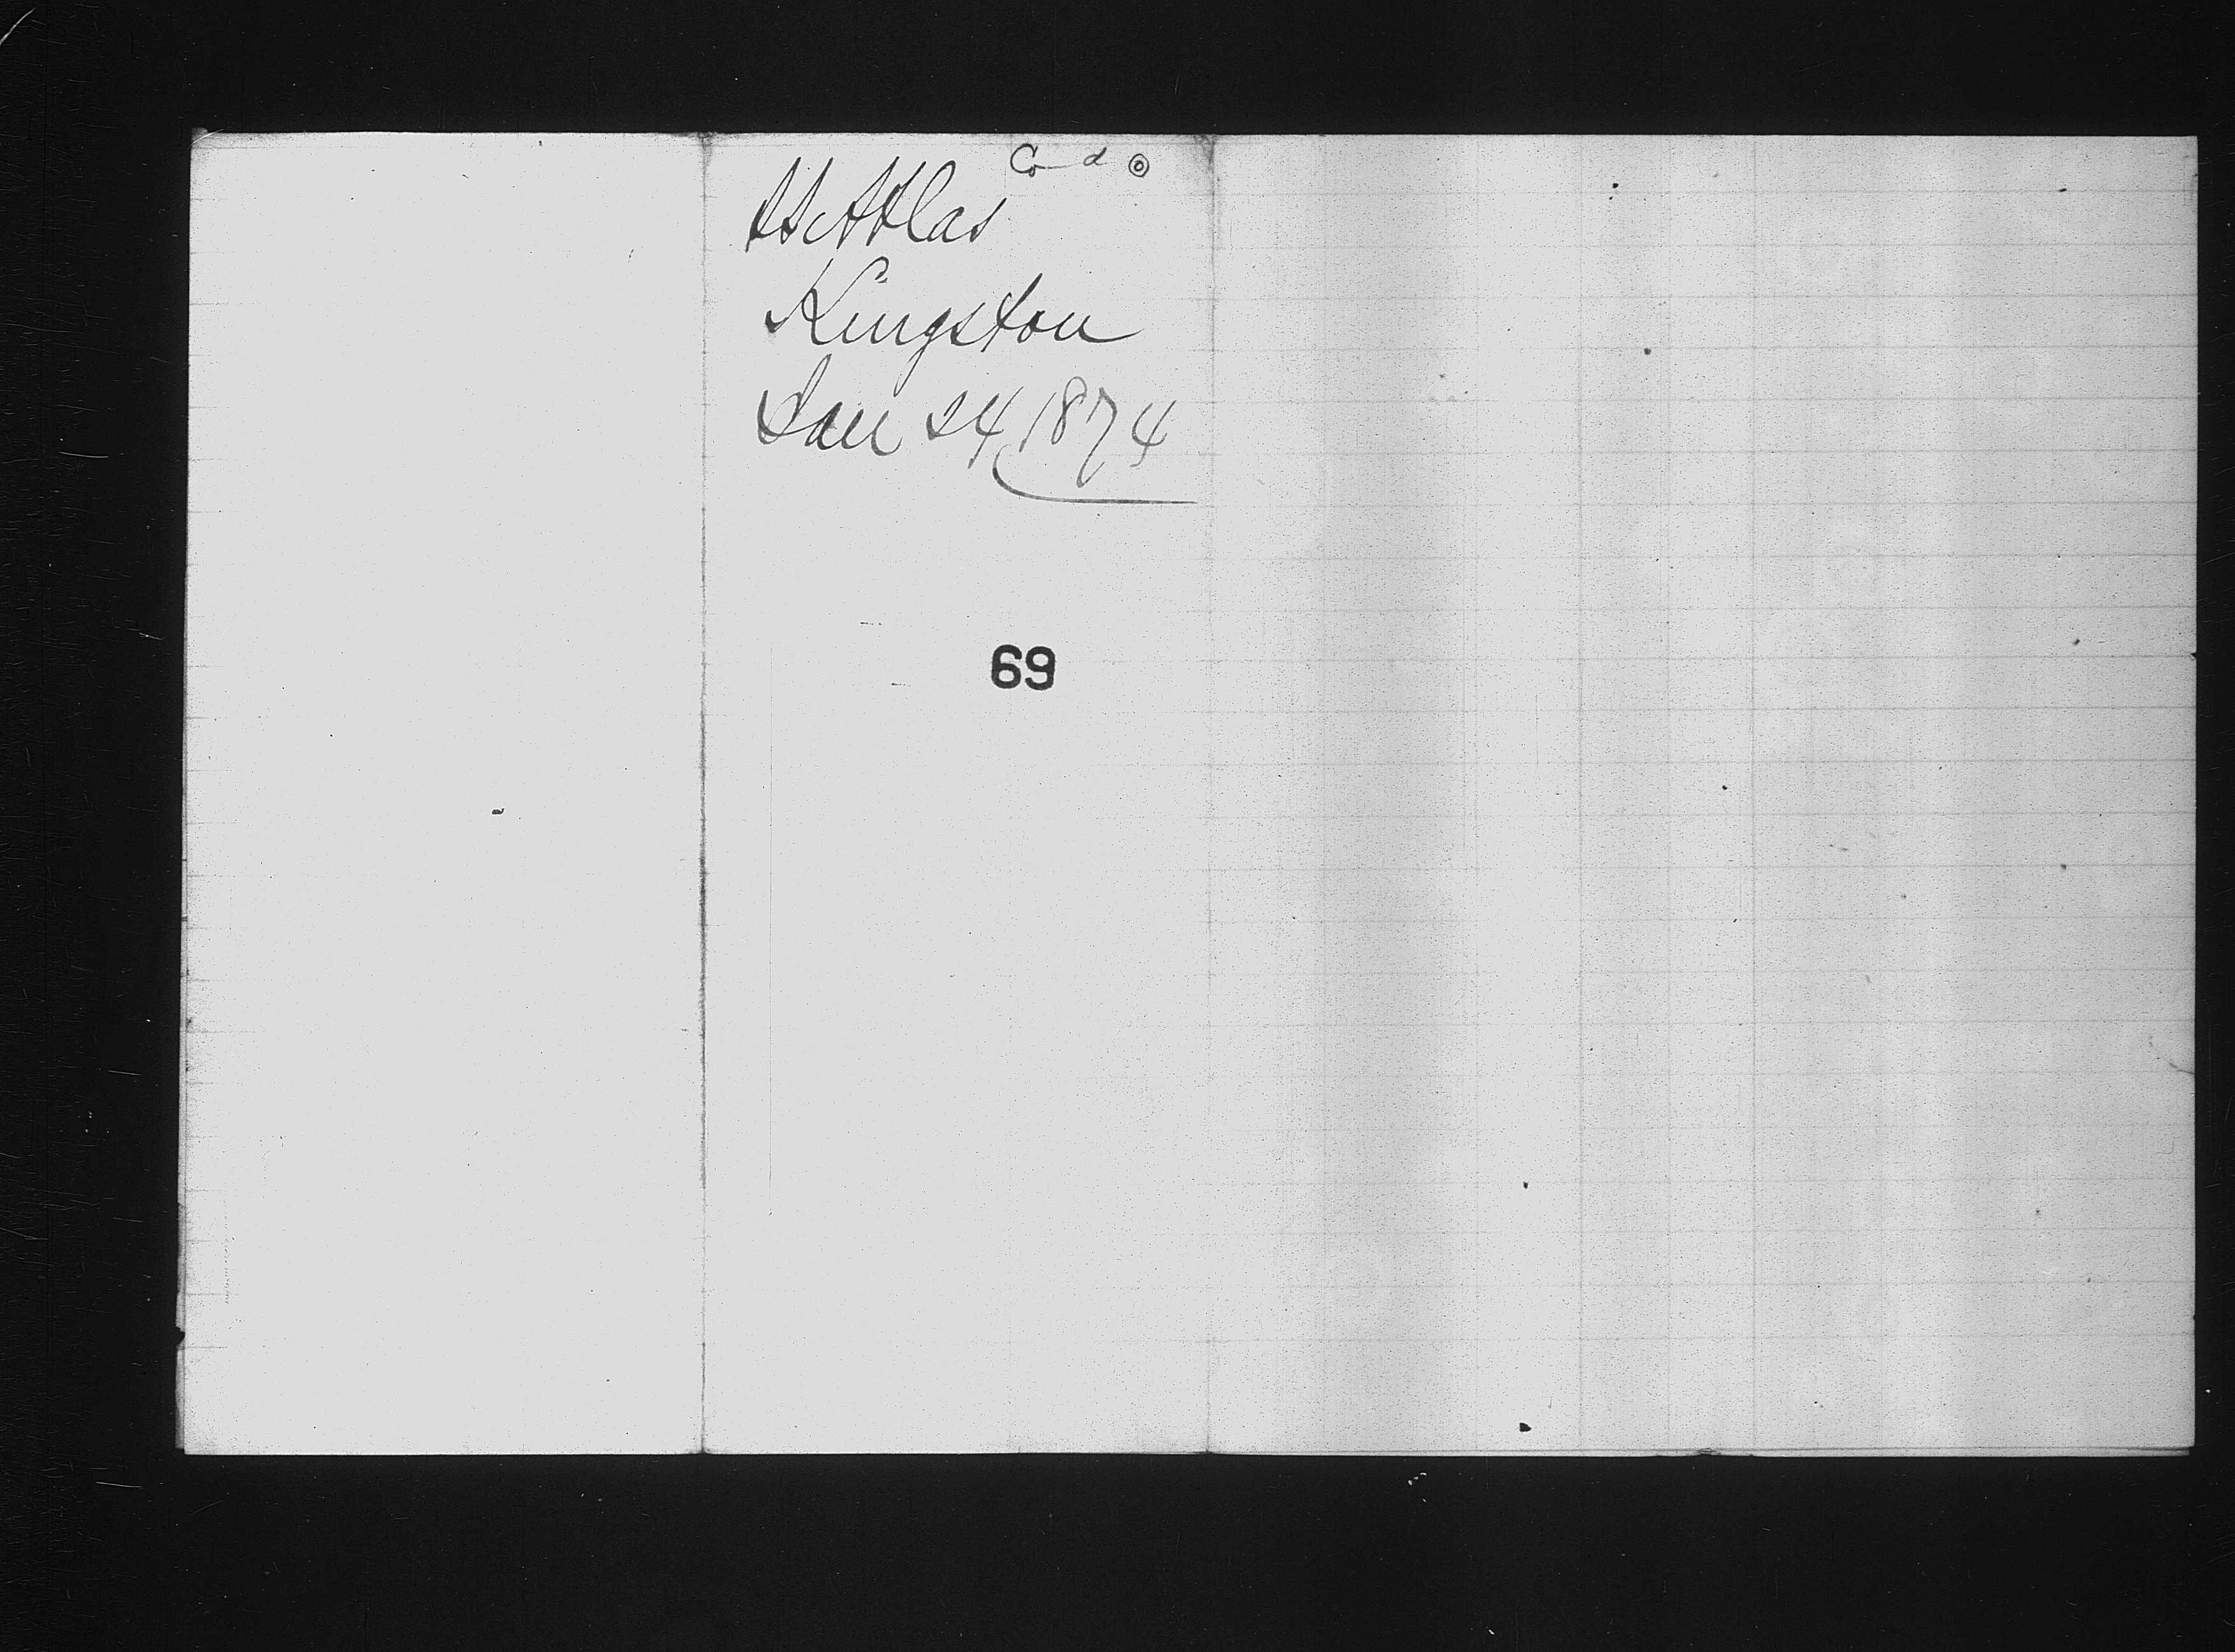 SS Atlas
Kingston
Jan 24 1874
69